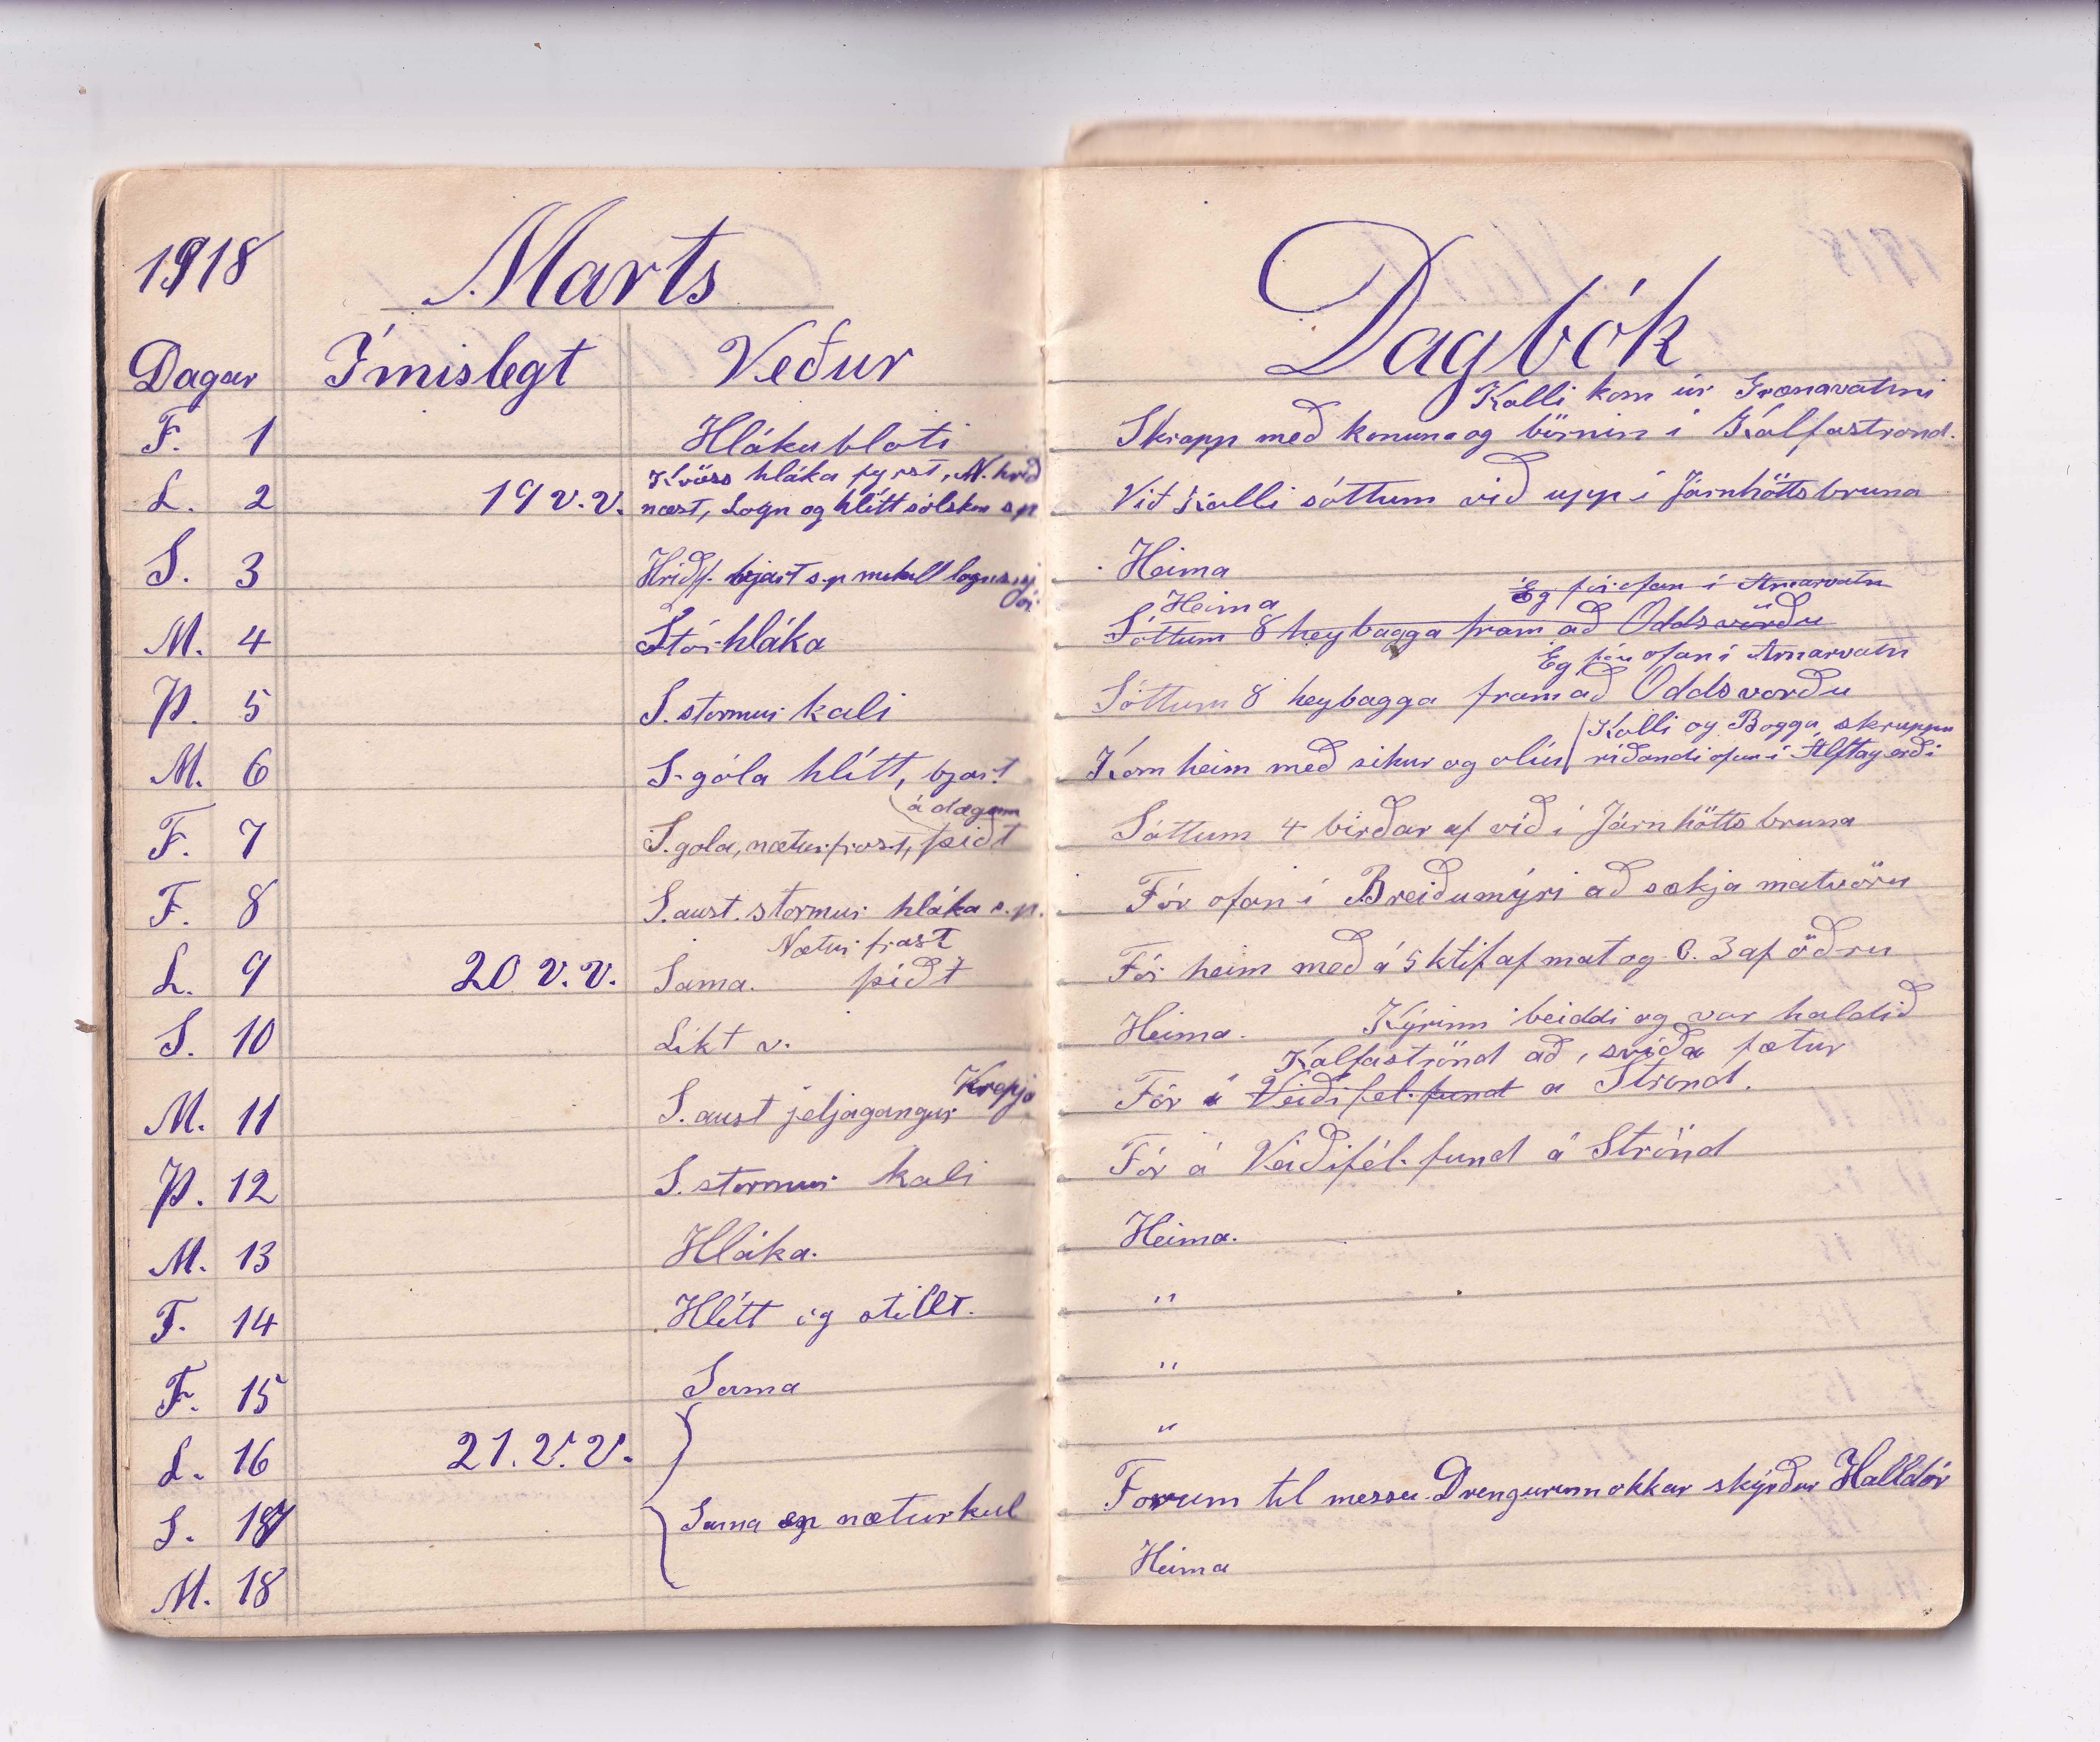 1918 Marts
Dagar Ímislegt Veður
F. 1 Hlákubloti
Kvöss hláka fyrst, N. hríð
L. 2 19 v.v. næst, Logn og hlítt sólsken s.p
S. 3 Hríð f. bjart s.p
M. 4 Stór hláka
Þ. 5 S. stormur kali
M. 6 S. góla hlítt, bjart
á dægum
F. 7 S. gola, næturfrost, þiðt
F. 8 S. aust. stormur hláka s.p.
Nætur frost
L. 9 20 v.v. Sama. þiðt
S. 10 Líkt v.
Krepja
M. 11 S. aust jeljagangur
Þ. 12 S. stormur kali
M. 13 Hláka.
F. 14 Hlítt og stillt.
F. 15 Sama
L. 16 21. V.V.
S. 17 Sama en næturkul
M. 18
Dagbók
Kalli kom úr Grænavatni
Skrapp með konuna og börnin í Kálfastrond.
Við Kalli sóttum við upp í Járnhöttsbruna
Heima
Eg fór ofan í Arnarvatn
Heima
Sóttum 8 heybagga fram að Oddsvörðu
Eg fór ofan í Arnarvatn
Sóttum 8 heybagga fram að Oddsvorðu
Kalli og Bogga skruppu
Kom heim með sikur og olíu ríðandi ofan í Álftagerði
Sóttum 4 birðar af við í Járnhöttsbruna
Fór ofan í Breiðumýri að sækja matvöru
Fór heim með á 5 af mat og 3 af öðru
Heima. Kýrinn beiddi og var haldið
Kálfaströnd að, svíða fætur
Fór á Veiðifél. fund a Strond.
Fór á Veiðifél. fund á Strönd
Heima.
"
"
"
Forum til messu. Drengurinn okkar skýrður Halldór
Heima